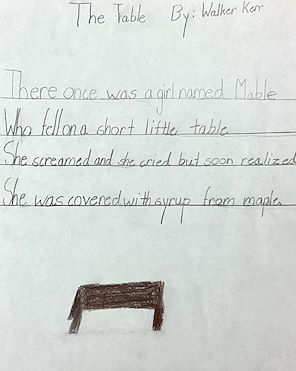 The Table By: Walker Kerr
There once was a girl named Mable
Who fell on a short little table
She screamed and she cried but soon realized
She was covered with syrup from maple